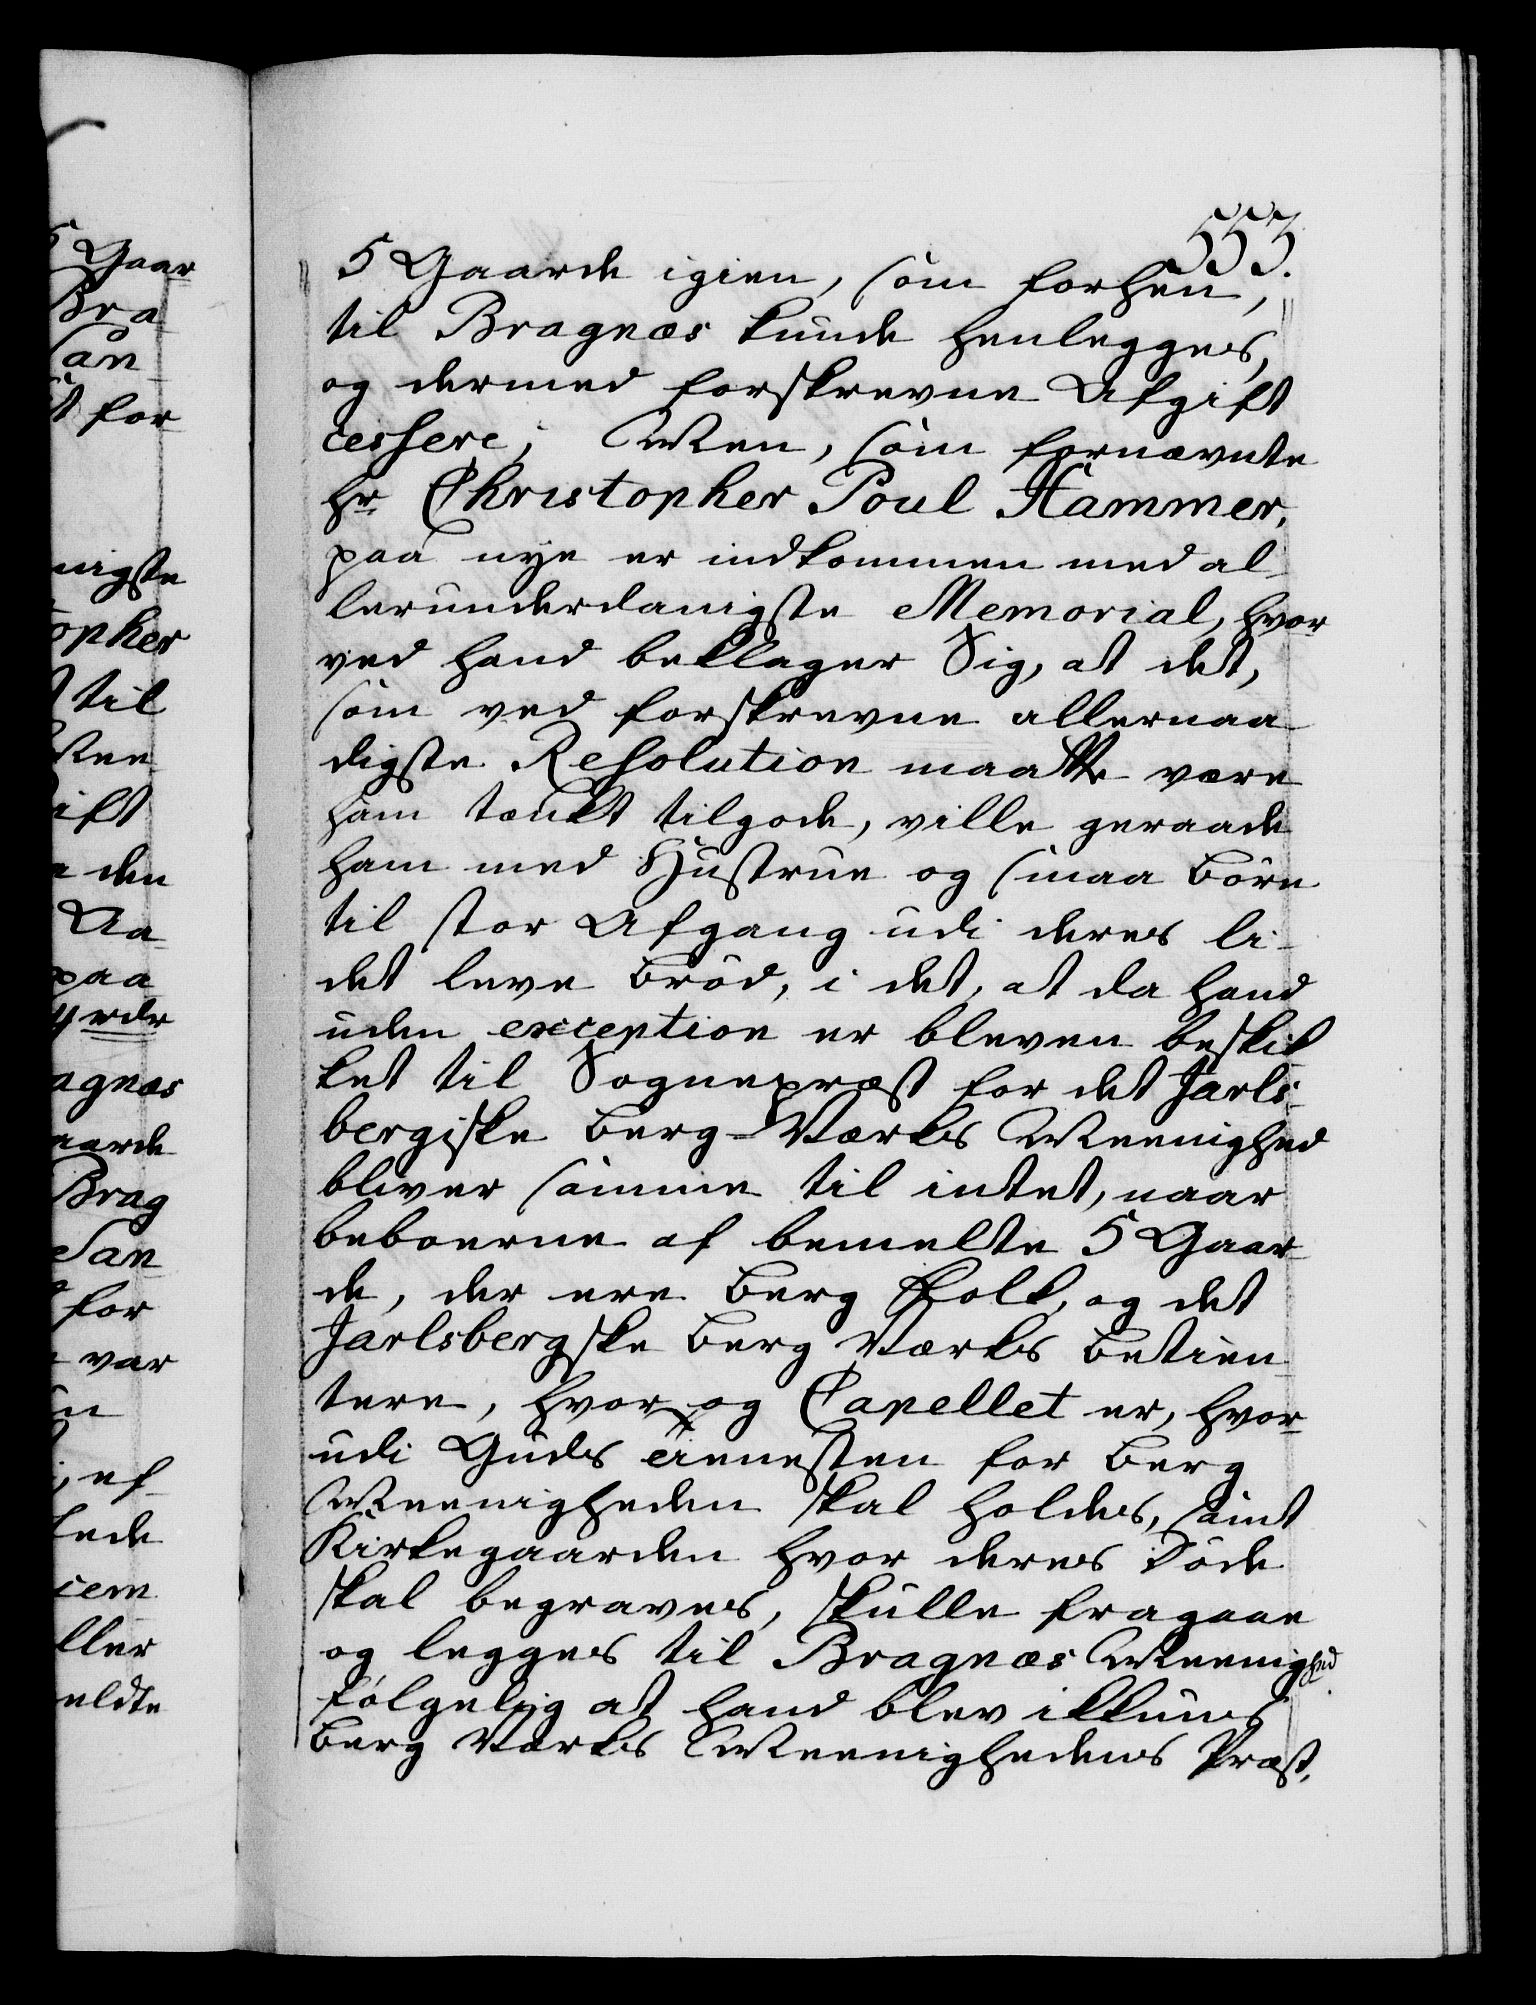 553.
5 Gaarde igien, som forhen,
til Bragnæs kunde henlegges,
og dermed forskrevne Afgift
cessere; Men, som fornævnte
Hr Christopher Poul Hammer,
paa nye er indkommen med al-
lerunderdanigste Memorial, hvor
ved hand beklager Sig, at det,
som ved forskrevne allernaa
digste Resolution maatte være
ham tænkt tilgode, ville geraade
ham med Hustrue og smaa Börn
til stor Afgang udi deres li-
det leve Bröd, i det, at da hand
uden exception er bleven beskik
ket til Sognepræst for det Jarls-
bergiske Berg-Værks Meenighed
bliver samme til intet, naar
beboerne af bemelte 5 Gaar-
de, der ere Berg Folk, og det
Jarlsbergske Berg Værks Betien-
tere, hvor og Capellet er, hvor-
udi Guds tienesten for Berg
Meenigheden skal holdes, samt
Kirkegaarden hvor deres Döde
skal begraves, skulle fragaae
og legges til Bragnæs Meenighed.
fölgelig at hand blev ikkuns
Berg Værks Meenighedens Præst,
5 Gaar
Bra
San
for
nigste
opher
til
ift
den
Aa-
paa
4 rdr
agnæs
aarde
Brag
San
for
var
ef-
cem
ller
eldte